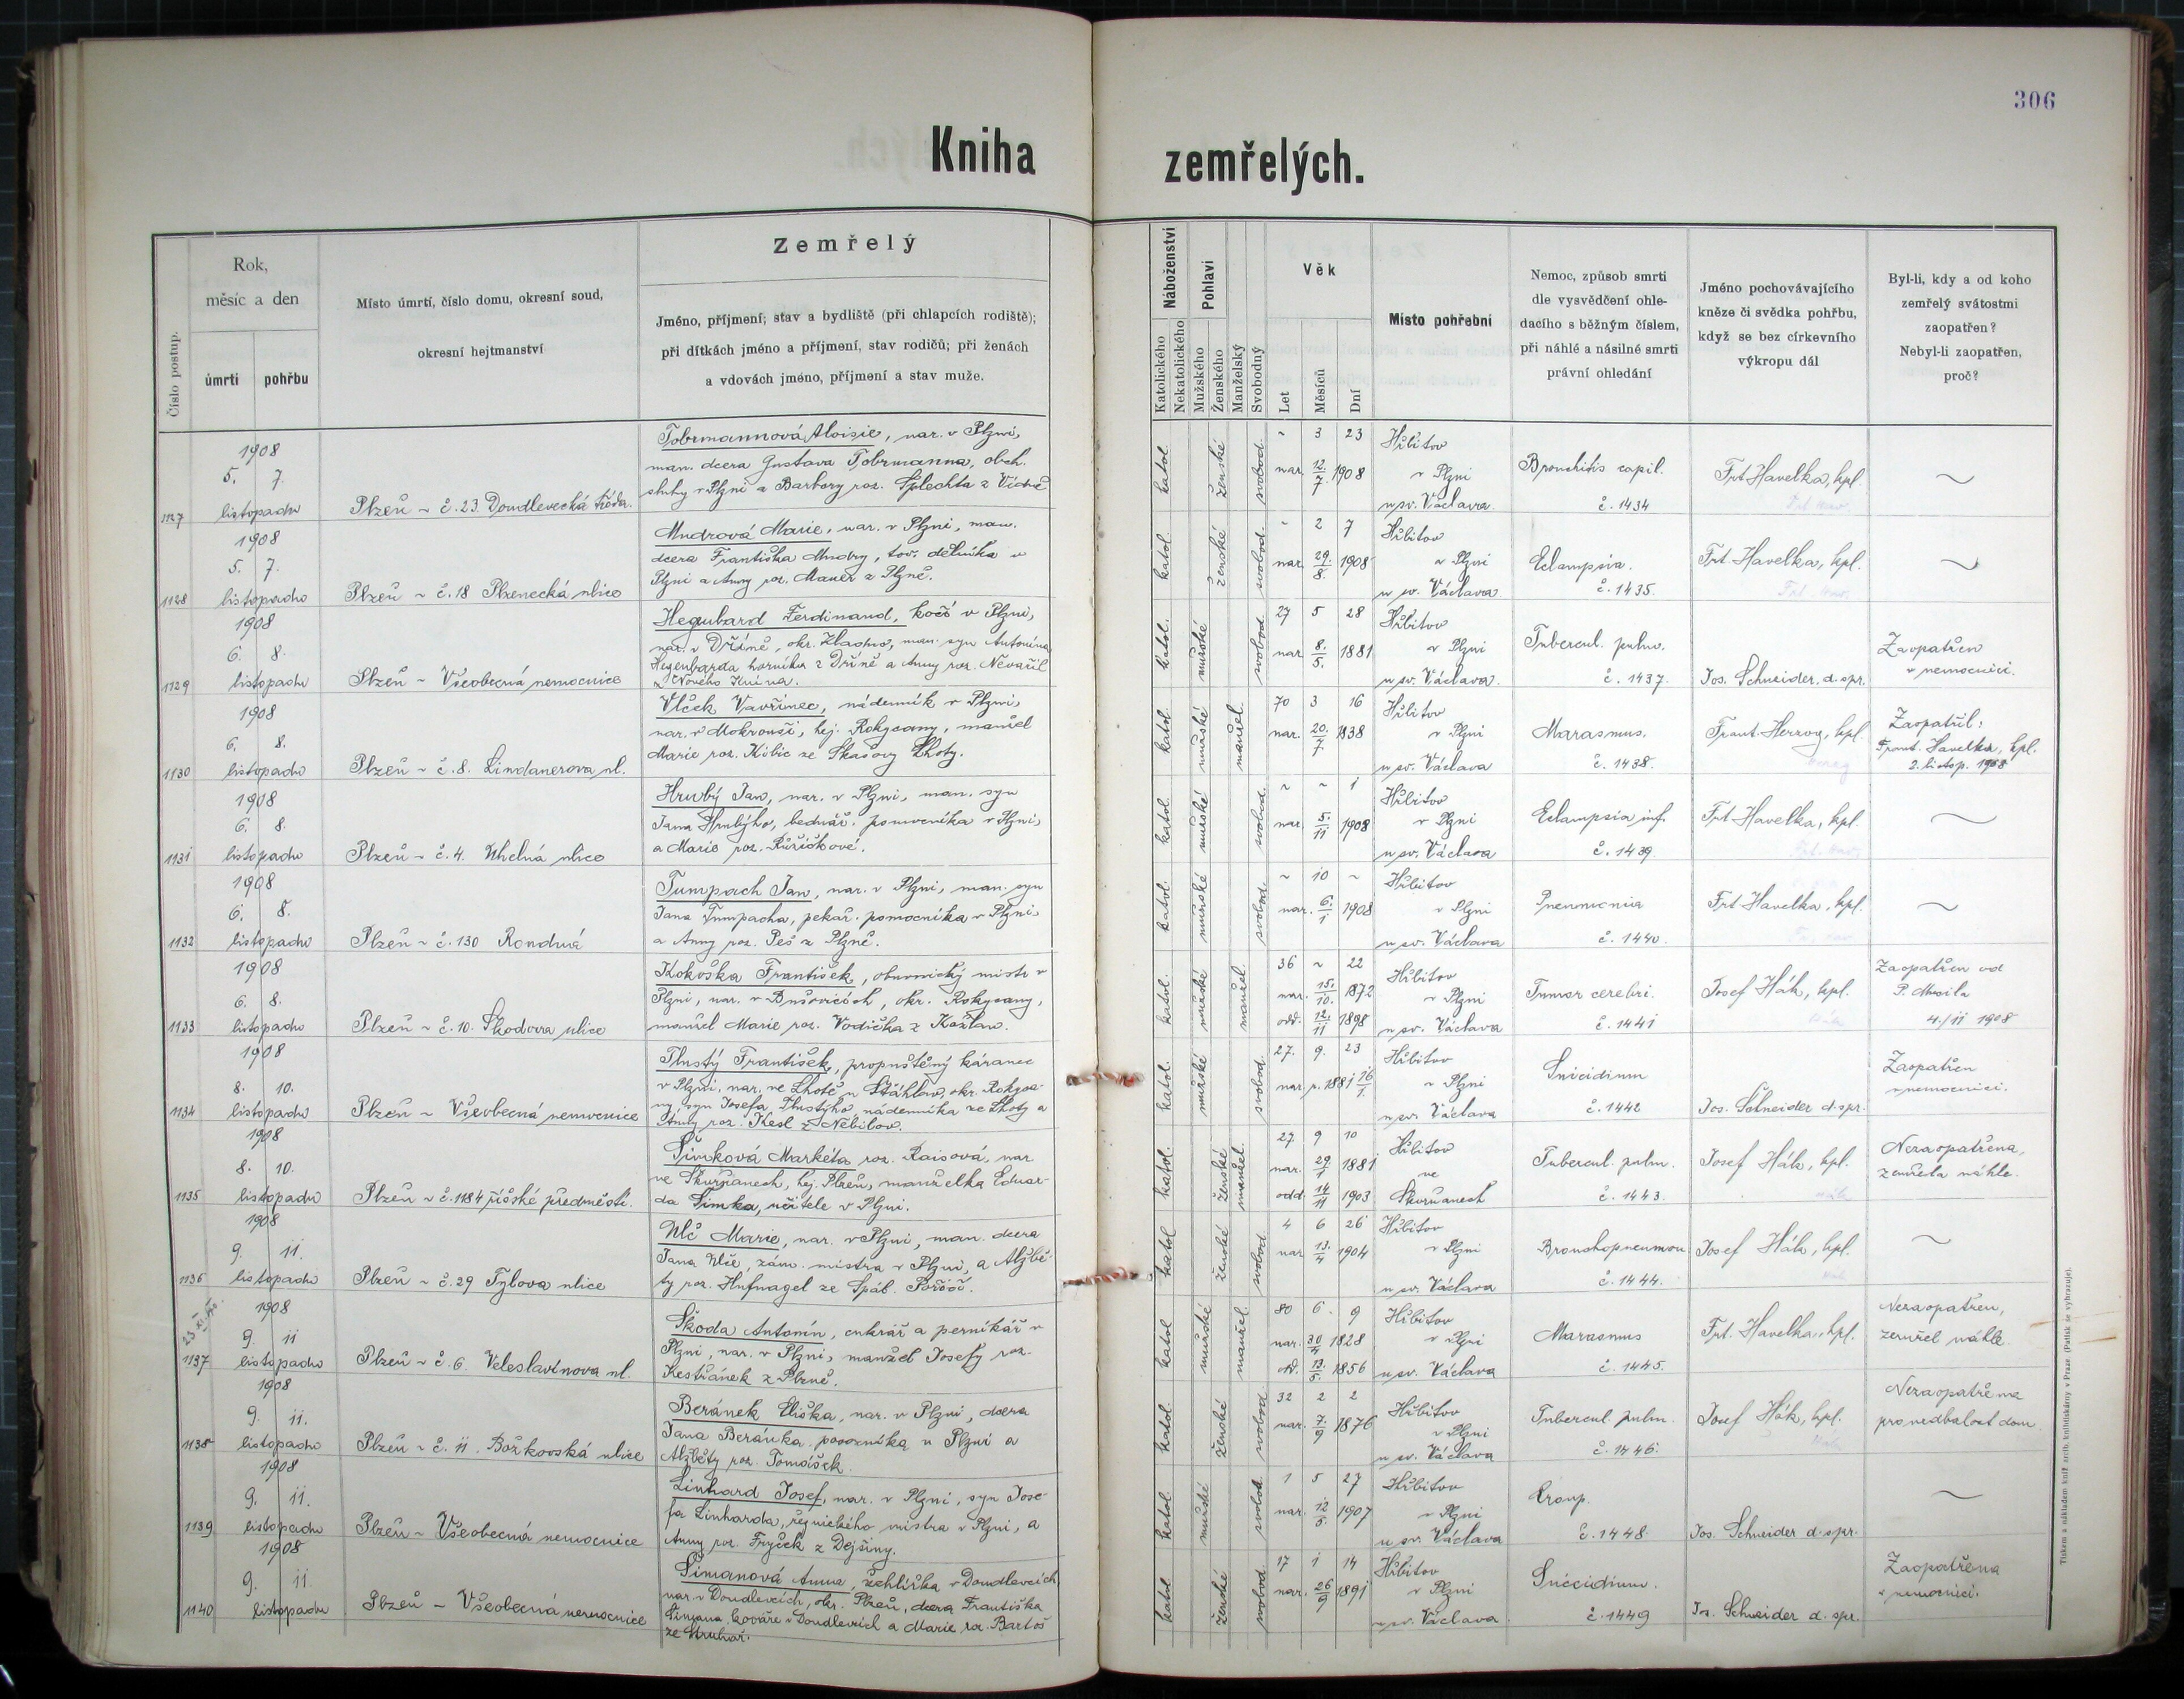 306
Kniha zemřelých.
Číslo postup.
Rok,
měsíc a den
úmrtí
pohřbu
Místo úmrtí, číslo domu, okresní soud,
okresní hejtmanství
Zemřelý
Jméno, příjmení; stav a bydliště (při chlapcích rodiště);
při dítkách jméno a příjmení, stav rodičů; při ženách
a vdovách jméno, příjmení a stav muže.
Náboženství
Katolického
Nekatolického
Pohlaví
Mužského
Ženského
Manželský
Svobodný
Věk
Let
Měsíců
Dní
Místo pohřební
Nemoc, způsob smrti
dle vysvědčení ohle-
dacího s běžným číslem,
při náhlé a násilné smrti
právní ohledání
Jméno pochovávajícího
kněze či svědka pohřbu,
když se bez církevního
výkropu dál
Byl-li, kdy a od koho
zemřelý svátostmi
zaopatřen?
Nebyl-li zaopatřen,
proč?
1127 1908 5. 7. listopadu
Plzeň ~ č. 23. Doudlevecká třída.
Tobrmannová Aloisie, nar. v Plzni,
man. dcera Gustava Tobrmanna, obch.
sluhy v Plzni a Barbory roz. Splechta z
katol. ženské svobod. ~ 3 23
nar. 12./7 1908
Hřbitov
v Plzni
u sv. Václava
Bronchitis capil.
č. 1434
Frt Havelka, kpl.
~
1128 1908 5. 7. listopadu
Plzeň ~ č. 18 Plzenecká ulice
Mudrová Marie, nar. v Plzni, man.
dcera Františka Mudry, tov. dělníka v
Plzni a Anny roz. Mauer z Plzně.
katol. ženské svobod. ~ 2 7
nar. 29./8. 1908
Hřbitov
v Plzni
u sv. Václava
Eclampsia.
č. 1435.
Frt. Havelka, kpl.
~
1129 1908 6. 8. listopadu
Plzeň ~ Všeobecná nemocnice
Hegenbard Ferdinand, kočí v Plzni,
nar. v Dříně, okr. Kladno, man. syn Antonína
Hegenbarda horníka z Dříně a Anny roz. Nevařil
z Nového Knína.
katol. mužské svobod. 27 5 28
nar. 8./5. 1881
Hřbitov
v Plzni
u sv. Václava.
Tubercul. pulm.
č. 1437.
Jos. Schneider, d. spr.
Zaopatřen
v nemocnici.
1130 1908 6. 8. listopadu
Plzeň ~ č. 8. Lindauerova ul.
Vlček Vavřinec, nádenník v Plzni,
nar. v Mokrouši, hej. Rokycany, manžel
Marie roz. Kubic ze Skašovy Lhoty.
katol. mužské manžel. 70 3 16
nar. 20./7. 1838
Hřbitov
v Plzni
u sv. Václava
Marasmus.
č. 1438.
Frant. Herzog, kpl.
Zaopatřil:
Frant. Havelka, kpl.
2. listop. 1908
1131 1908 6. 8. listopadu
Plzeň ~ č. 4. Uhelná ulice
Hrubý Jan, nar. v Plzni, man. syn
Jana Hrubýho, bednář. pomocníka v Plzni,
a Marie roz. Růžičkové.
katol. mužské svobod. ~ ~ 1
nar. 5./11 1908
Hřbitov
v Plzni
u sv. Václava
Eclampsia inf.
č. 1439.
Frt Havelka, kpl.
~
1132 1908 6. 8. listopadu
Plzeň ~ č. 130 Rondná
Tumpach Jan, nar. v Plzni, man. syn
Jana Tumpacha, pekař. pomocníka v Plzni,
a Anny roz. Peš z Plzně.
katol. mužské svobod. ~ 10 ~
nar. 6./1 1908
Hřbitov
v Plzni
u sv. Václava
Pneumonia
č. 1440.
Frt Havelka, kpl.
~
1133 1908 6. 8. listopadu
Plzeň ~ č. 10. Škodova ulice
Kokoška František, obuvnický mistr v
Plzni, nar. v Bušovicích, okr. Rokycany,
manžel Marie roz. Vodička z Kožlan.
katol. mužské manžel. 36 ~ 22
nar. 15./10. 1872
odd. 12./11 1898
Hřbitov
v Plzni
u sv. Václava
Tumor cerebri.
č. 1441
Josef Hák, kpl.
Zaopatřen od
P. Musila
4./11 1908
1134 1908 8. 10. listopadu
Plzeň ~ Všeobecná nemocnice
Tlustý František, propuštěný káranec
v Plzni, nar. ve Lhotě u Štáhlav, okr. Rokyca-
ny, syn Josefa Tlustýho, nádenníka ze Lhoty a
Anny roz. Kesl z Nebílov.
katol. mužské svobod. 27. 9. 23
nar. r. 1881 16/1.
Hřbitov
v Plzni
u sv. Václava
Suicidium
č. 1442
Jos. Schneider d. spr.
Zaopatřen
v nemocnici.
1135 1908 8. 10. listopadu
Plzeň ~ č. 1184 říšské předměstí.
Šimková Markéta roz. Raisová, nar.
ve Skvrňanech, hej. Plzeň, manželka Eduar-
da Šimka, učitele v Plzni.
katol. ženské manžel. 27. 9 10
nar. 29/1 1881
odd. 14/11 1903
Hřbitov
ve
Skvrňanech
Tubercul. pulm.
č. 1443.
Josef Hák, kpl.
Nezaopatřena,
zemřela náhle
1136 1908 9. 11. listopadu
Plzeň ~ č. 29 Tylova ulice
Ulč Marie, nar. v Plzni, man. dcera
Jana Ulče, zám. mistra v Plzni, a Alžbě-
ty roz. Hufnagel ze Spál. Poříčí.
katol ženské svobod. 4 6 26
nar. 13./4 1904
Hřbitov
v Plzni
u sv. Václava
Bronchopneumon
č. 1444.
Josef Hák, kpl.
~
1137 1908 9. 11 listopadu
Plzeň ~ č. 6. Veleslavínova ul.
Škoda Antonín, cukrář a perníkář v
Plzni, nar. v Plzni, manžel Josefy roz.
Kestřánek z Plzně.
katol mužské manžel 80 6. 9
nar. 30/4 1828
odd. 13./5. 1856
Hřbitov
v Plzni
u sv. Václava
Marasmus
č. 1445.
Frt. Havelka, kpl.
Nezaopatřen,
zemřel náhle.
1138 1908 9. 11. listopadu
Plzeň ~ č. 11. Božkovská ulice
Beránek Eliška, nar. v Plzni, dcera
Jana Beránka, povozníka v Plzni a
Alžběty roz. Tomášek.
katol. ženské svobod 32 2 2
nar. 7./9 1876
Hřbitov
v Plzni
u sv. Václava
Tubercul. pulm.
č. 1446.
Josef Hák, kpl.
Nezaopatřena
pro nedbalost dom.
1139 1908 9. 11. listopadu
Plzeň ~ Všeobecná nemocnice
Linhard Josef, nar. v Plzni, syn Jose-
fa Linharda, řeznického mistra v Plzni, a
Anny roz. Fryček z Dejšiny.
katol. mužské svobod. 1 5 27
nar. 12/5. 1907
Hřbitov
v Plzni
u sv. Václava
Croup.
č. 1448.
Jos. Schneider d. spr.
~
1140 1908 9. 11. listopadu
Plzeň ~ Všeobecná nemocnice
Šimanová Anna, žehlířka v Doudlevcích,
nar. v Doudlevcích, okr. Plzeň, dcera Františka
Šimana kováře v Doudlevcích a Marie roz. Bartoš
ze
katol ženské svobod. 17 1 14
nar. 26/9 1891
Hřbitov
v Plzni
u sv. Václava
Suicidium.
č. 1449
Jos. Schneider d. spr.
Zaopatřena
v nemocnici.
Tiskem a nákladem kníž. arcib. knihtiskárny v Praze. (Patisk se vyhrazuje).